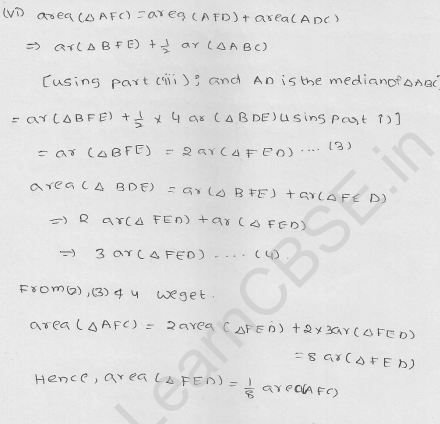 (vi) area (△ AFC) = area (AFD) + area (ADC)
⇒ ar(△ BFE) + 1/2 ar (△ABC)
[using part (iii); and AD is the median of △ABC]
= ar (△BFE) + 1/2 × 4 ar (△BDE) (using part i)]
= ar (△BFE) = 2ar (△FED) .... (3)
area (△ BDE) = ar(△ BFE) + ar(△FED)
⇒ 2 ar(△ FED) + ar (△ FED)
⇒ 3 ar(△FED) .... (4)
From (2), (3) & 4 we get.
area (△AFC) = 2area (△FED) + 2×3ar(△FED)
= 8 ar(△FED)
Hence, area (△FED) = 1/8 area(AFC)
LearnCBSE.in